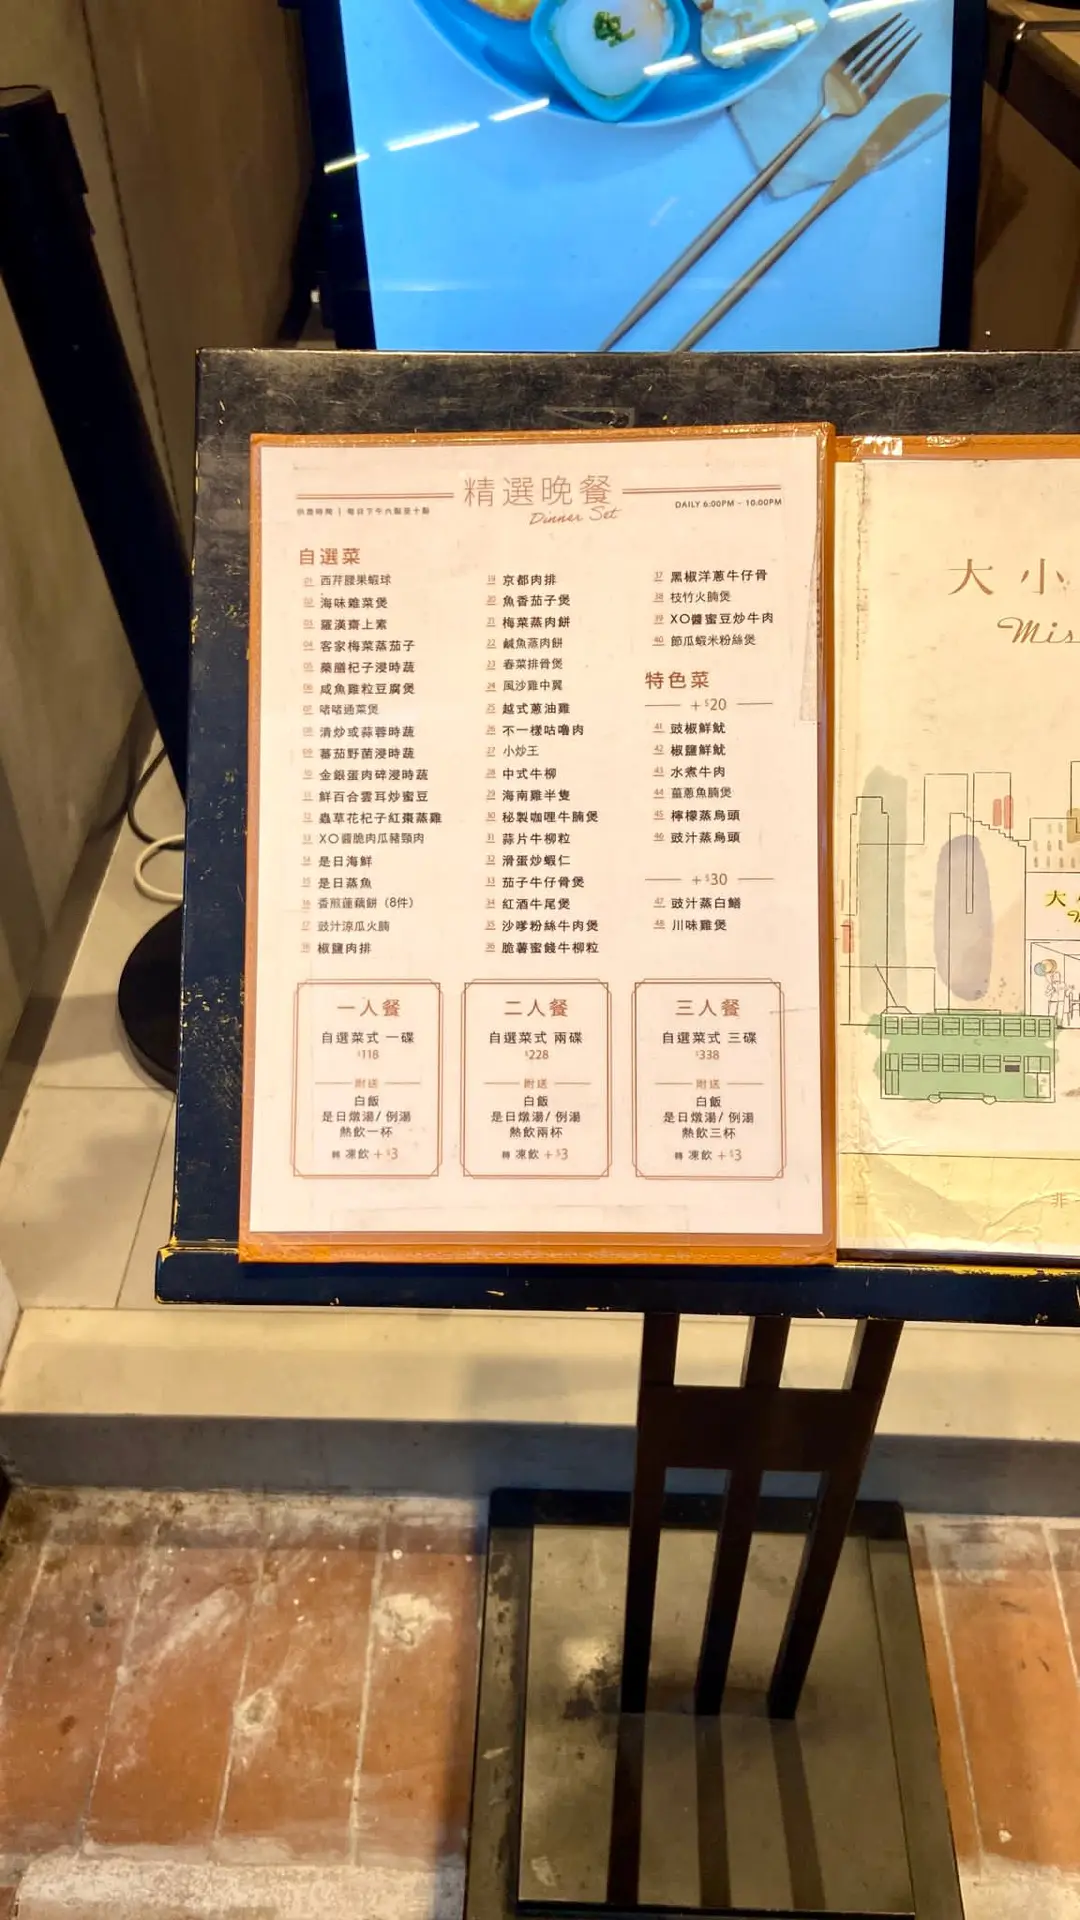 精選晚餐
Dinner Set
供應時間 | 每日下午六點至十點
DAILY 6:00PM - 10:00PM
自選菜
01 西芹腰果蝦球
02 海味雜菜煲
03 羅漢齋上素
04 客家梅菜蒸茄子
05 藥膳杞子浸時蔬
06 咸魚雞粒豆腐煲
07 啫啫通菜煲
08 清炒或蒜蓉時蔬
09 蕃茄野菌浸時蔬
10 金銀蛋肉碎浸時蔬
11 鮮百合雲耳炒蜜豆
12 蟲草花杞子紅棗蒸雞
13 XO醬脆肉瓜豬頸肉
14 是日海鮮
15 是日蒸魚
16 香煎蓮藕餅 (8件)
17 豉汁涼瓜火腩
18 椒鹽肉排
19 京都肉排
20 魚香茄子煲
21 梅菜蒸肉餅
22 鹹魚蒸肉餅
23 春菜排骨煲
24 風沙雞中翼
25 越式蔥油雞
26 不一樣咕嚕肉
27 小炒王
28 中式牛柳
29 海南雞半隻
30 秘製咖喱牛腩煲
31 蒜片牛柳粒
32 滑蛋炒蝦仁
33 茄子牛仔骨煲
34 紅酒牛尾煲
35 沙嗲粉絲牛肉煲
36 脆薯蜜餞牛柳粒
37 黑椒洋蔥牛仔骨
38 枝竹火腩煲
39 XO醬蜜豆炒牛肉
40 節瓜蝦米粉絲煲
特色菜
+$20
41 豉椒鮮魷
42 椒鹽鮮魷
43 水煮牛肉
44 薑蔥魚腩煲
45 檸檬蒸烏頭
46 豉汁蒸烏頭
+$30
47 豉汁蒸白鱔
48 川味雞煲
一人餐
自選菜式 一碟
$118
附送
白飯
是日燉湯/ 例湯
熱飲一杯
轉 凍飲 +$3
二人餐
自選菜式 兩碟
$228
附送
白飯
是日燉湯/ 例湯
熱飲兩杯
轉 凍飲 +$3
三人餐
自選菜式 三碟
$338
附送
白飯
是日燉湯/ 例湯
熱飲三杯
轉 凍飲 +$3
大小
Mis
大
非